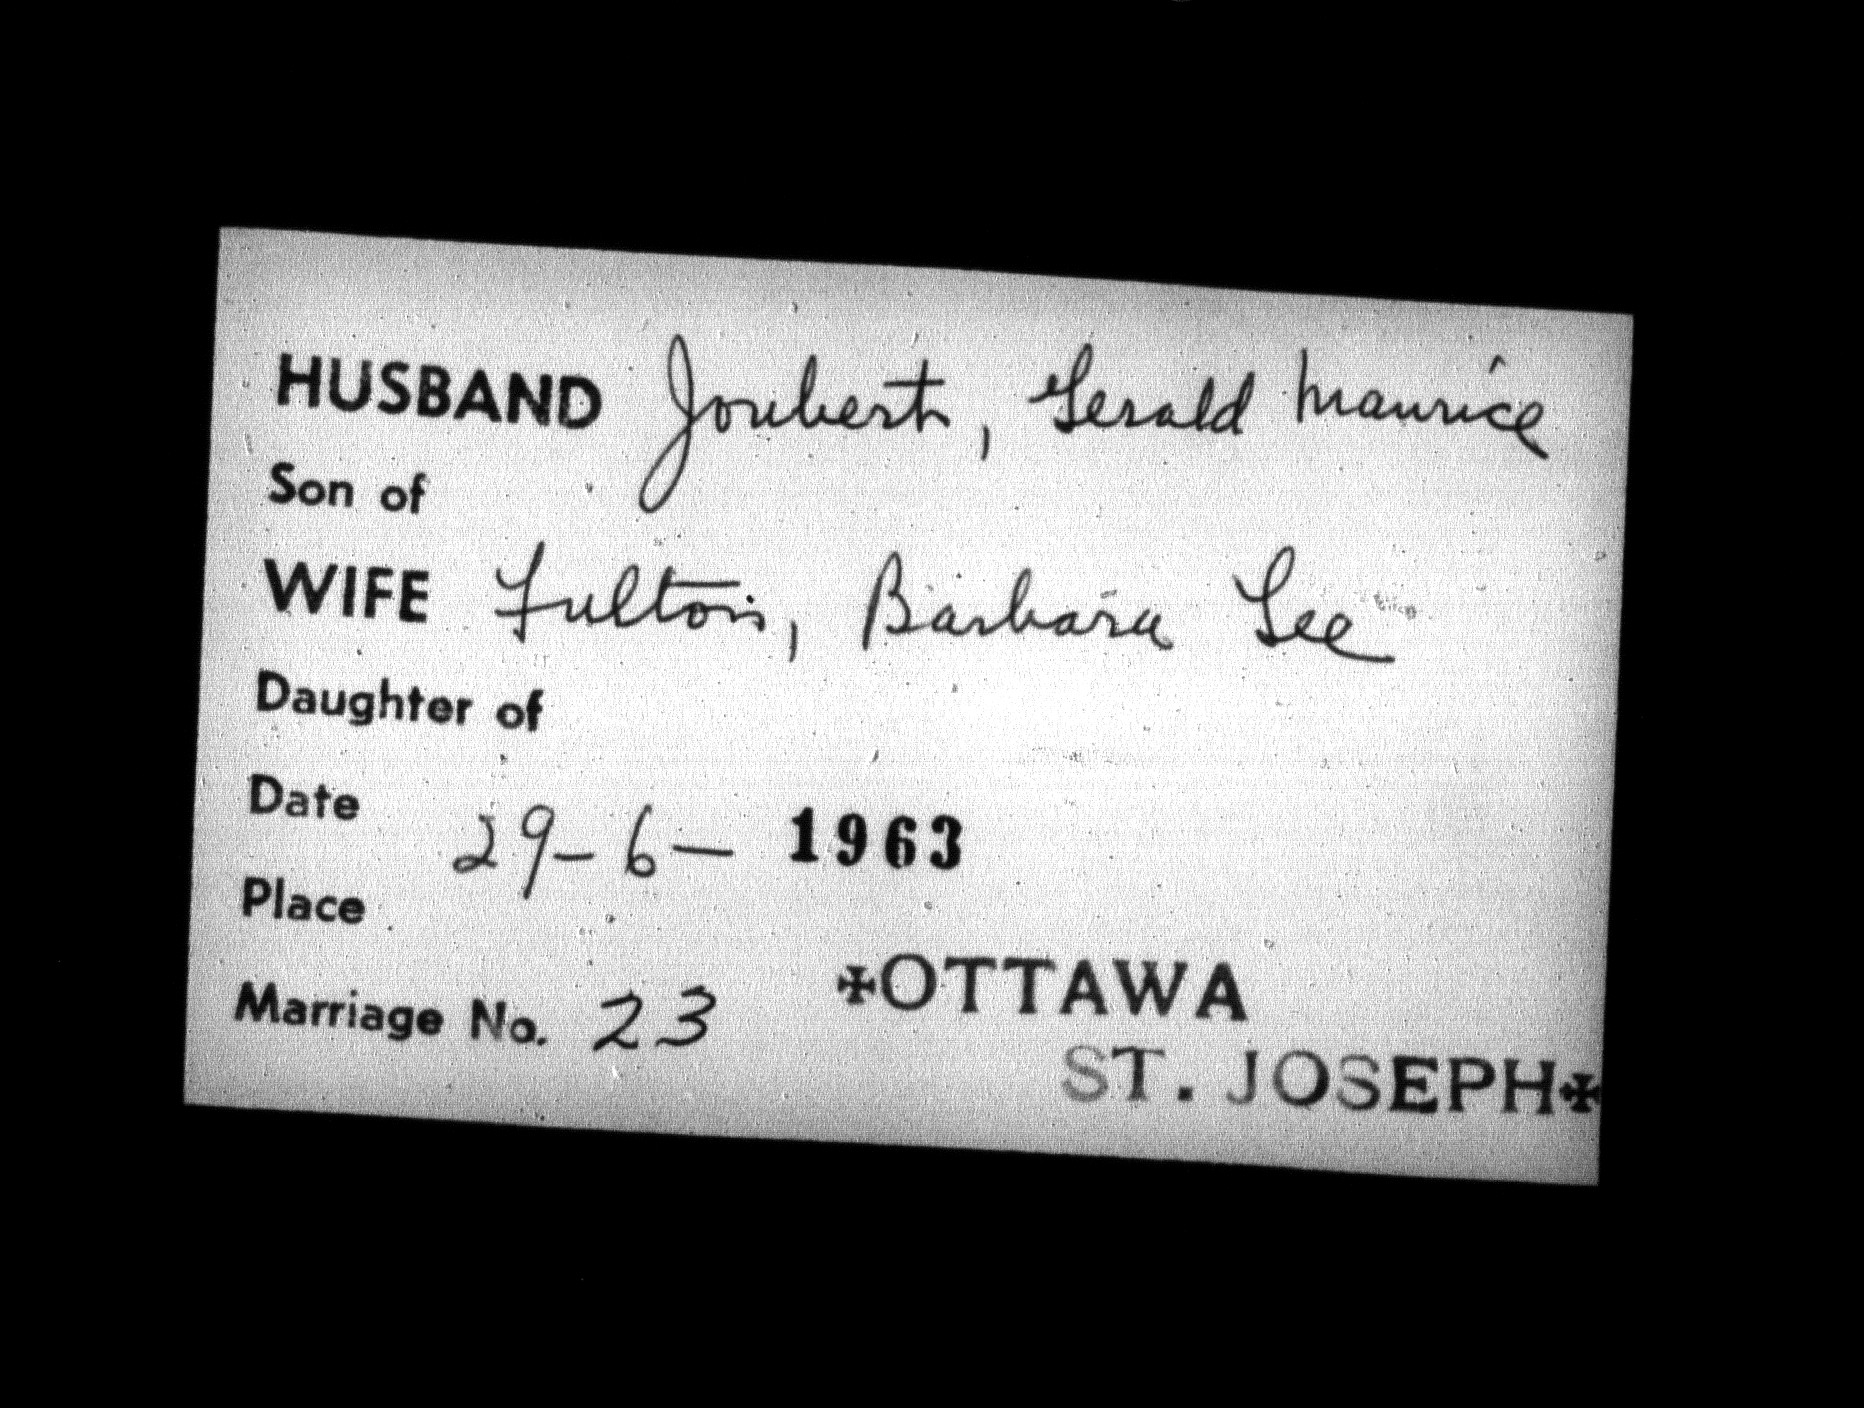 HUSBAND Joubert, Gerald Maurice
Son of
WIFE Fulton, Barbara Lee
Daughter of
Date 29-6- 1963
Place
✠OTTAWA
Marriage No. 23
ST. JOSEPH✠